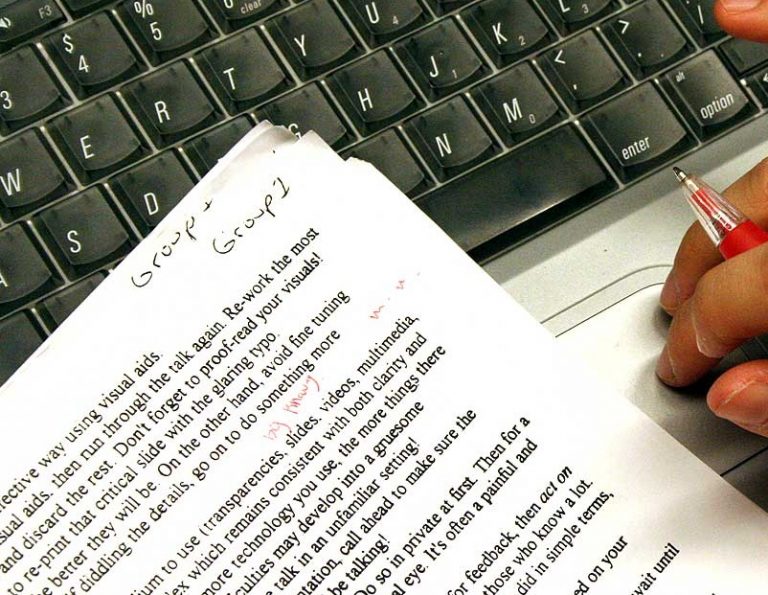 F3
clear
$
4
%
5
U
4
K
2
L
3
<
,
>
.
3
E
R
T
Y
H
J
1
N
M
0
W
S
D
G
alt
option
enter
Group
Group 1
lective way using visual aids.
sual aids, then run through the talk again. Re-work the most
and discard the rest. Don't forget to proof-read your visuals!
to re-print that critical slide with the glaring typo.
e better they will be. On the other hand, avoid fine tuning
f diddling the details, go on to do something more
ium to use (transparencies, slides, videos, multimedia,
lex which remains consistent with both clarity and
more technology you use, the more things there
culties may develop into a gruesome
e talk in an unfamiliar setting!
ntation, call ahead to make sure the
be talking!
Do so in private at first. Then for a
al eye. It's often a painful and
for feedback, then act on
those who know a lot.
did in simple terms,
ed on your
wait until